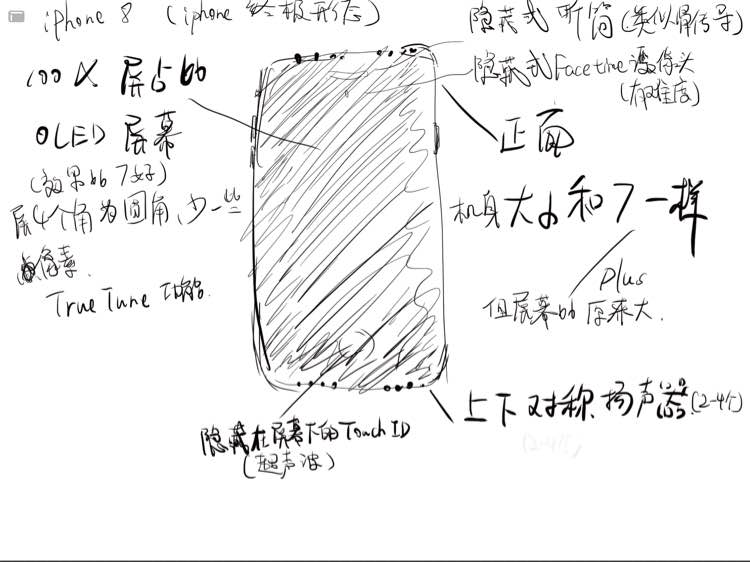 iphone 8 (iphone 终极形态)
隐藏式 听筒(类似骨传导)
隐藏式 Facetime 摄像头
(有难度)
100% 屏占比
OLED 屏幕
(效果比7好)
屏4个角为圆角,少一些
点像素.
True Tune 功能.
正面
机身大小和7一样
plus
但屏幕比原来大.
上下对称扬声器(2-4个)
隐藏在屏幕下的Touch ID
(超声波)
(2-4个)